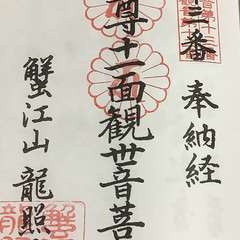 三番
奉納経
尊十一面観世音菩
蟹江山 龍照